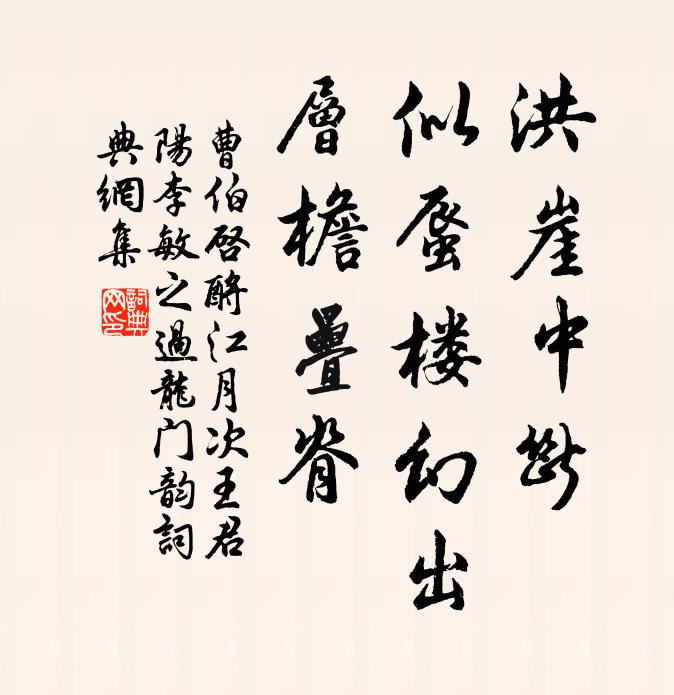 洪崖中断
似蜃楼幻出
層檐疊脊
曹伯啓酹江月次王君
陽李敏之過龍门韵詞
典網集
詞典网印